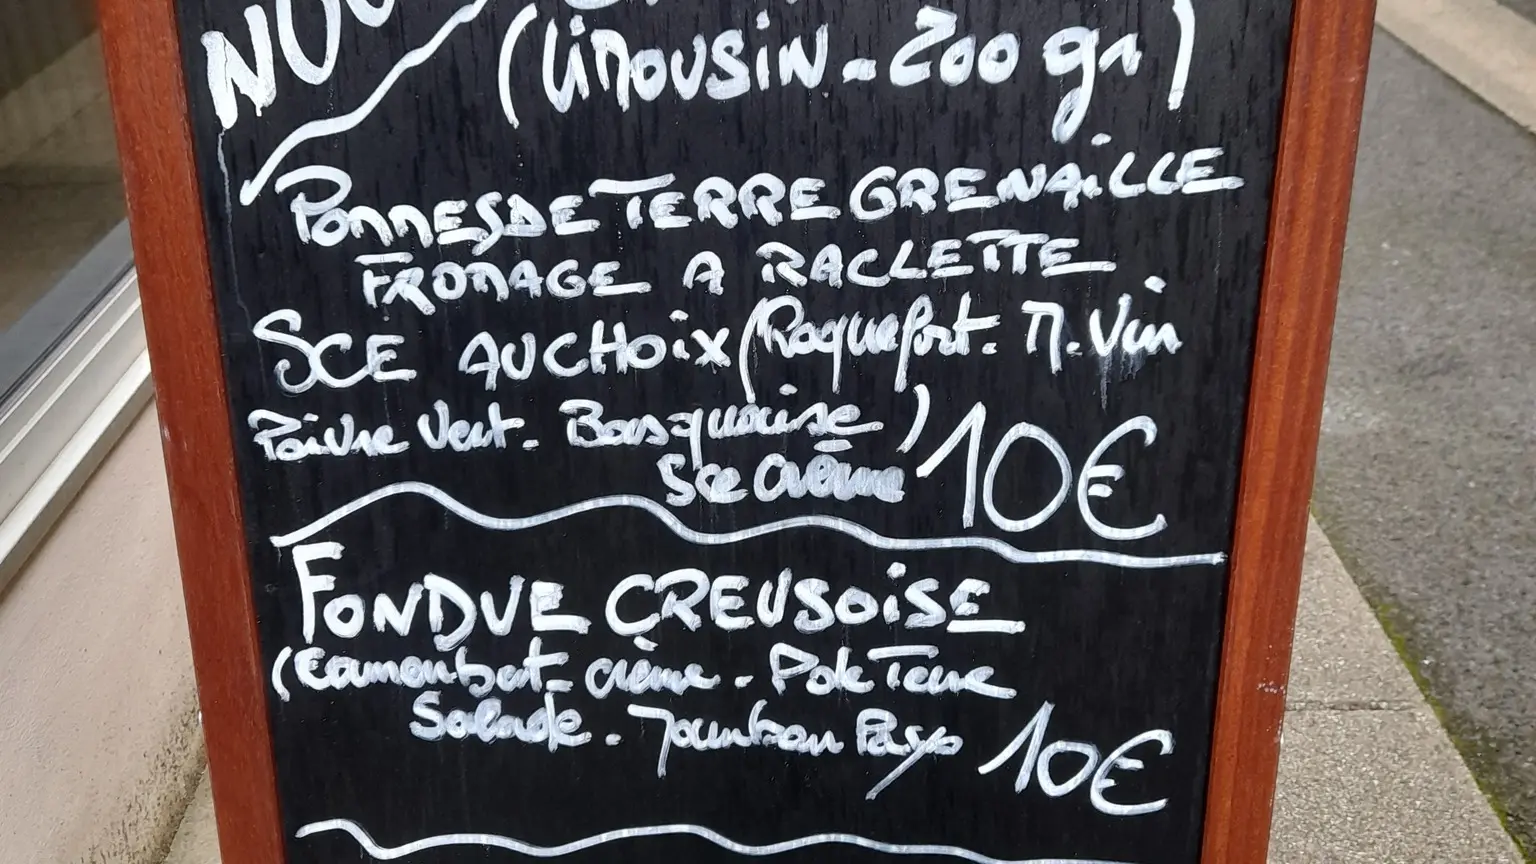 NOU
(LIMOUSIN - 200 gr)
POMMES DE TERRE GRENAILLE
FROMAGE A RACLETTE
SCE AU CHOIX (Roquefort. M. Vin
Poivre Vert. Basquaise)
Sce Crème 10€
FONDUE CREUSOISE
(Camembert - crème - P de Terre
Salade - Jambon Pays 10€